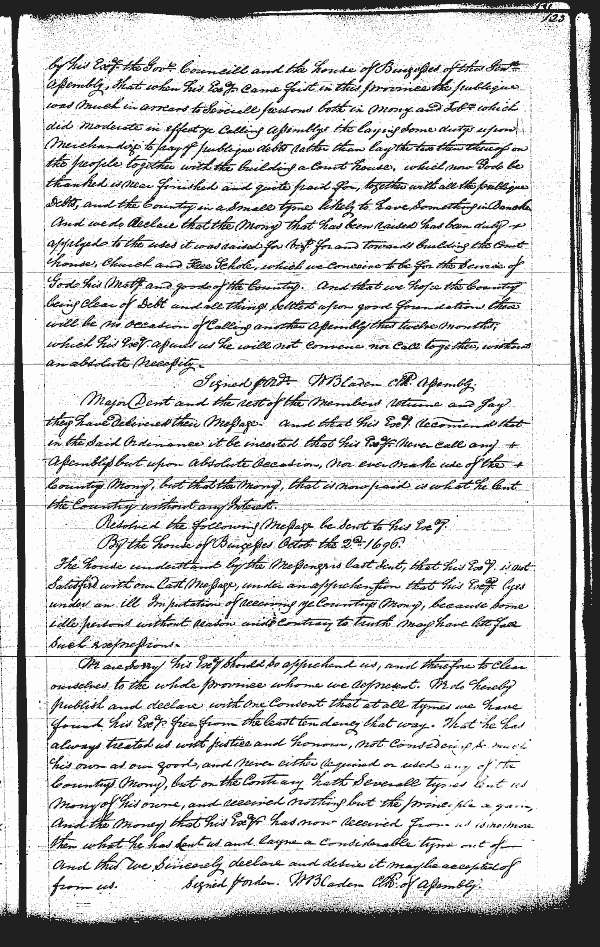 123
by his Excy the Govr Councill and the house of Burgesses of this Genll
Assembly, That when his Exy came first in this province the publique
was much in arrears to Severall persons both in mony and Tobo which
did moderate in effect ye Calling Assemblys the laying some dutys upon
Merchandize to pay ye publique debts rather then lay the burthen thereof on
the people together with the building a Court house, which now God be
thanked is near finished and quite paid for, together with all the publique
Debts, and the Country in a Small tyme likely to have Something in Banck.
And we do declare that the Mony that has been raised has been duly +
applyed to the uses it was raised for vizt for and towards building the Court
house, Church and Free Schole, which we conceive to be for the Service of
God his Maty and good of the Country. And that we hope the Country
being clear of Debt and all things settled upon good foundations there
will be no occasion of Calling another Assembly this twelve Months,
which his Exy assures us he will not convene nor call together, without
an absolute necessity.
Signed p Ordr. WBladen Clk Assembly.
Major Dent and the rest of the Members returne and say
they have delivered their Message. And that his Exy recomends that
in the said Ordinance it be inserted that his Exy never call any +
Assembly but upon absolute occasion, nor ever make use of the +
Country Mony, but that the mony, that is now paid is what he lent
the Country without any Interest.
Resolved the following Message be sent to his Exy.
By the house of Burgesses Octob. the 2d 1696.
The house understand by the Messengers last sent, that his Exy. is not
Satisfied with our Last Message, under an apprehension that his Exy lyes
under an ill Imputation of receiving ye Countrys Mony, because some
idle persons without reason and Contrary to truth may have lett fall
Such expressions.
We are Sorry his Exy should so apprehend us, and therefore to clear
ourselves to the whole province whome we represent. We do hereby
publish and declare with one Consent that at all tymes we have
found his Exy free from the least tendency that way. That he has
always treated us with justice and honour, not considering so much
his own as our good, and never either required or used any of the
Country Mony, but on the Contrary hath Severall tymes lent us
Mony of his owne, and received nothing but the principle again,
And the Money that his Exy has now received from us is no more
then what he has lent us and layne a considerable tyme out of
And this we Sincerely declare and desire it may be accepted of
from us. Signed p order. WBladen Clk. of Assembly.